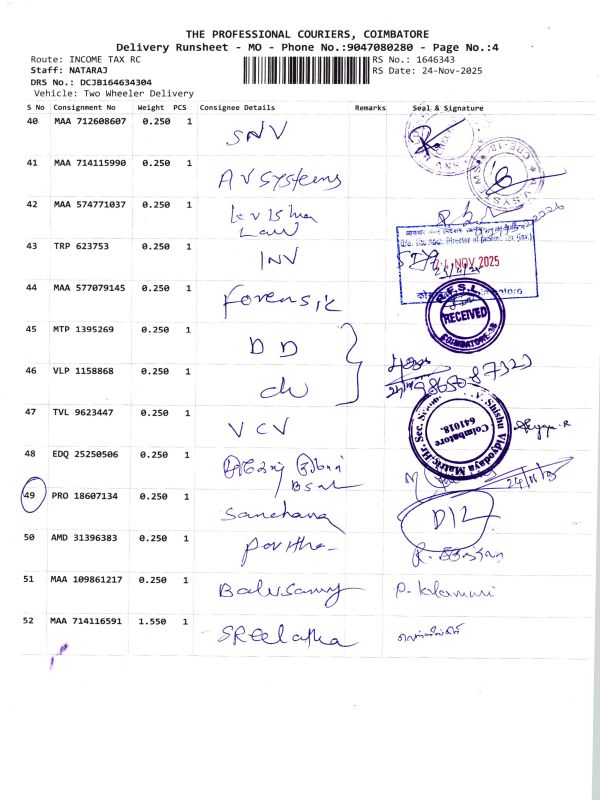 THE PROFESSIONAL COURIERS, COIMBATORE
Delivery Runsheet - MO - Phone No.:9047080280 - Page No.:4
Route: INCOME TAX RC RS No.: 1646343
Staff: NATARAJ RS Date: 24-Nov-2025
DRS No.: DCJB164634304
Vehicle: Two Wheeler Delivery
S No Consignment No Weight PCS Consignee Details Remarks Seal & Signature
40 MAA 712608607 0.250 1 SNV
41 MAA 714115990 0.250 1 AV Systems
42 MAA 574771037 0.250 1
Law
43 TRP 623753 0.250 1 INV
NOV 2025
44 MAA 577079145 0.250 1 Forensik
R.F.S.L. RECEIVED COIMBATORE-18
45 MTP 1395269 0.250 1 DD
46 VLP 1158868 0.250 1
47 TVL 9623447 0.250 1 VCV
Shishu Vidyodaya Matric. Hr. Sec. Coimbatore 641018.
48 EDQ 25250506 0.250 1
BSNL
24/11/25
49 PRO 18607134 0.250 1 Sanchana
D/L
50 AMD 31396383 0.250 1
51 MAA 109861217 0.250 1 Balusamy
52 MAA 714116591 1.550 1 SReelatha